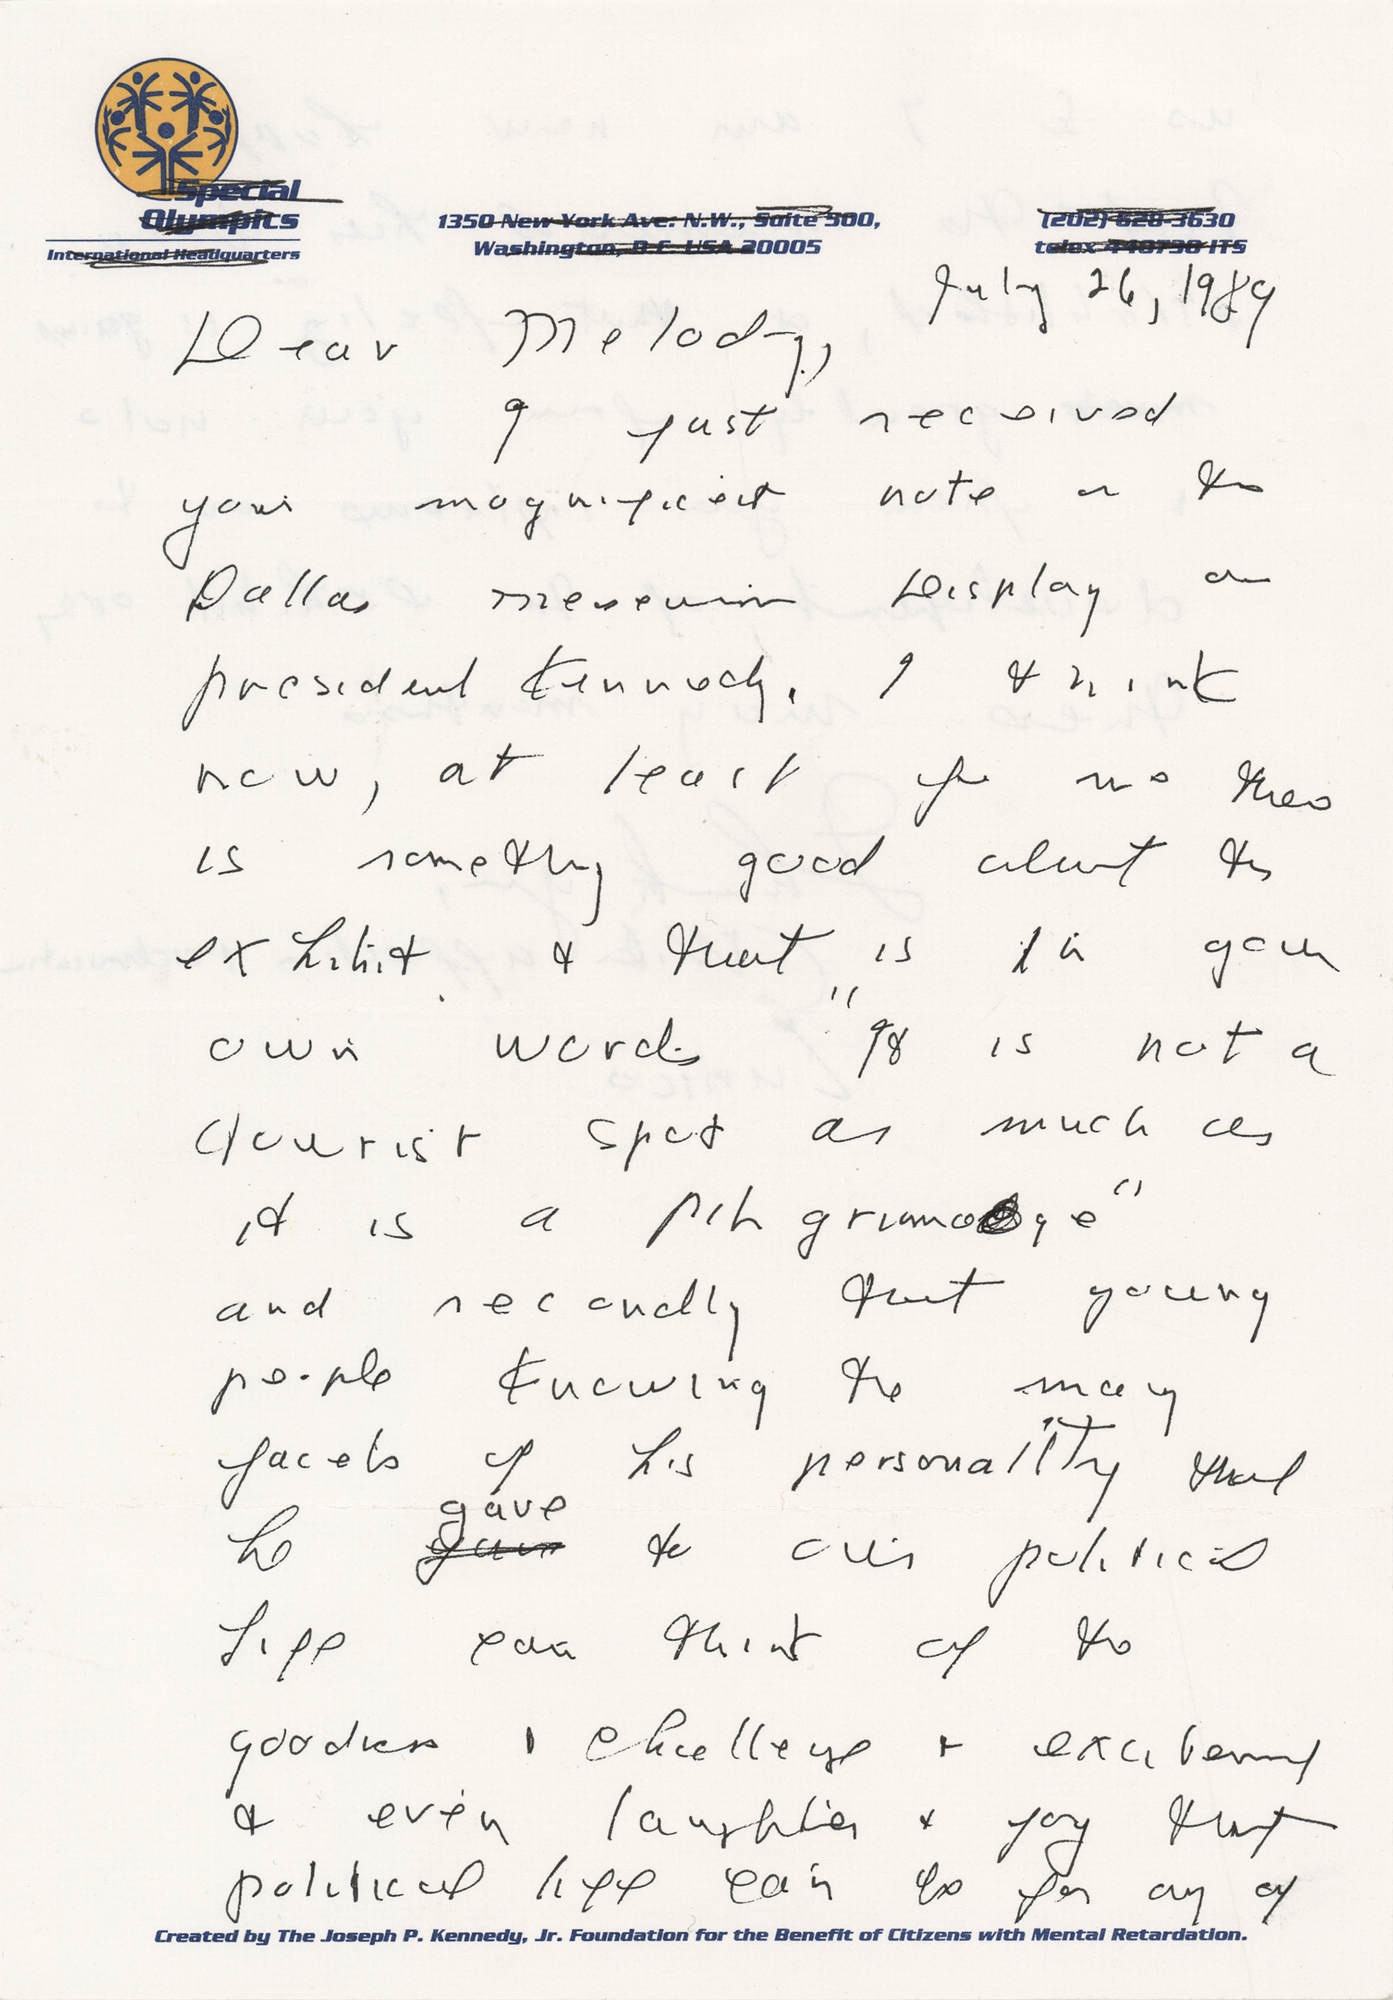 Special
Olympics
International Headquarters
1350 New York Ave. N.W., Suite 500,
Washington, D.C. USA 20005
(202) 628-3630
telex 440730 ITS
July 26, 1989
Dear Melody,
I just received
your magnificent note on the
Dallas museum display on
president Kennedy. I think
now, at least for me there
is something good about the
exhibit & that is in your
own words "It is not a
tourist spot as much as
it is a pilgrimage"
and secondly that young
people knowing the many
facets of his personality that
he gave to our political
life can think of the
goodness & challenge & excitement
& even laughter & joy that
political life can be for any of
Created by The Joseph P. Kennedy, Jr. Foundation for the Benefit of Citizens with Mental Retardation.